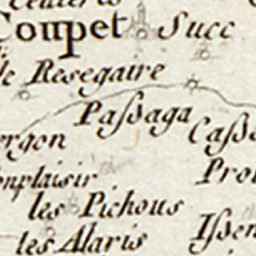 Coupet Succ
Resegaire
Paſsaga
ergon Caſs
mplaisir Pro
les Pichous
les Alaris Iſsen